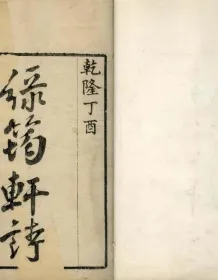 乾隆丁酉
綠筠軒詩